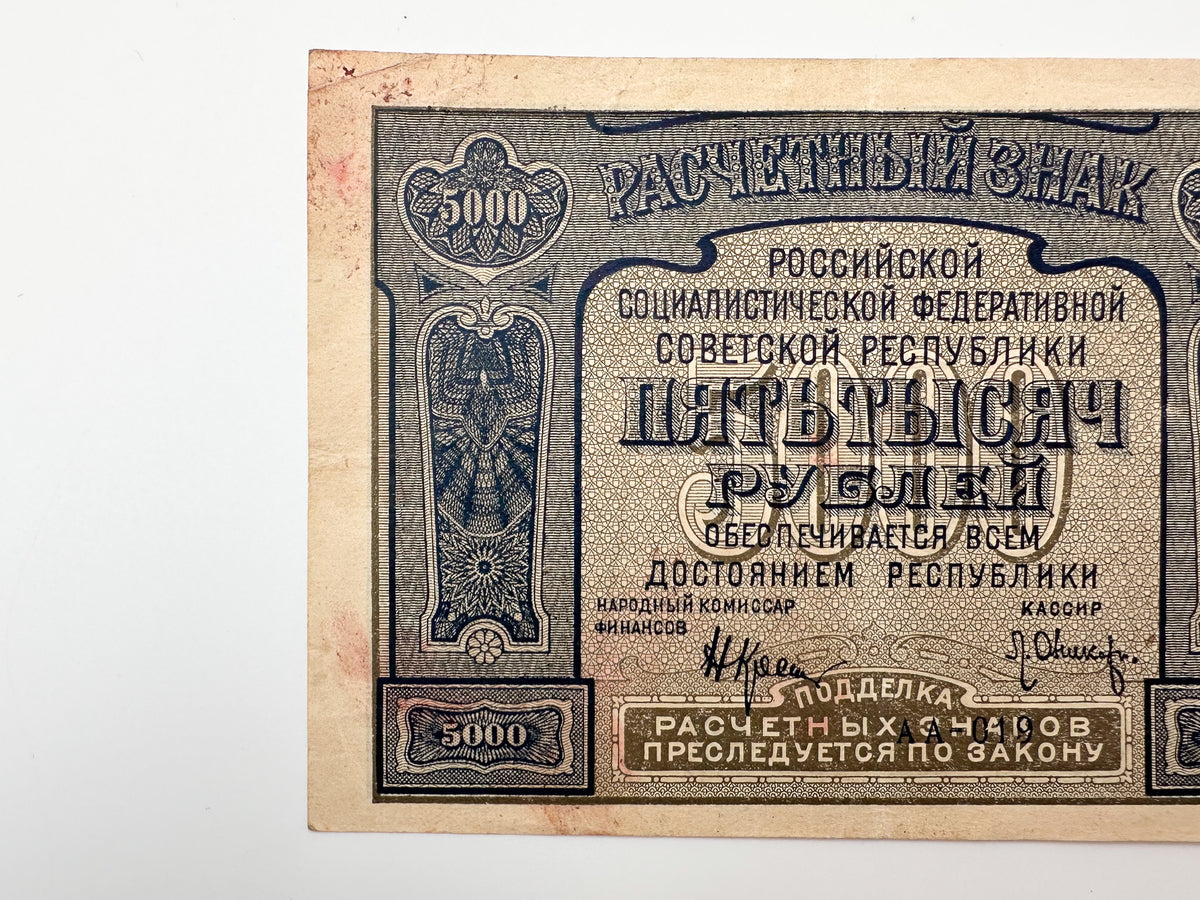 РАСЧЕТНЫЙ ЗНАК
5000
РОССИЙСКОЙ
СОЦИАЛИСТИЧЕСКОЙ ФЕДЕРАТИВНОЙ
СОВЕТСКОЙ РЕСПУБЛИКИ
5000
ПЯТЬ ТЫСЯЧ
РУБЛЕЙ
ОБЕСПЕЧИВАЕТСЯ ВСЕМ
ДОСТОЯНИЕМ РЕСПУБЛИКИ
НАРОДНЫЙ КОМИССАР
ФИНАНСОВ
КАССИР
ПОДДЕЛКА
РАСЧЕТНЫХ ЗНАКОВ
АА-019
ПРЕСЛЕДУЕТСЯ ПО ЗАКОНУ
5000